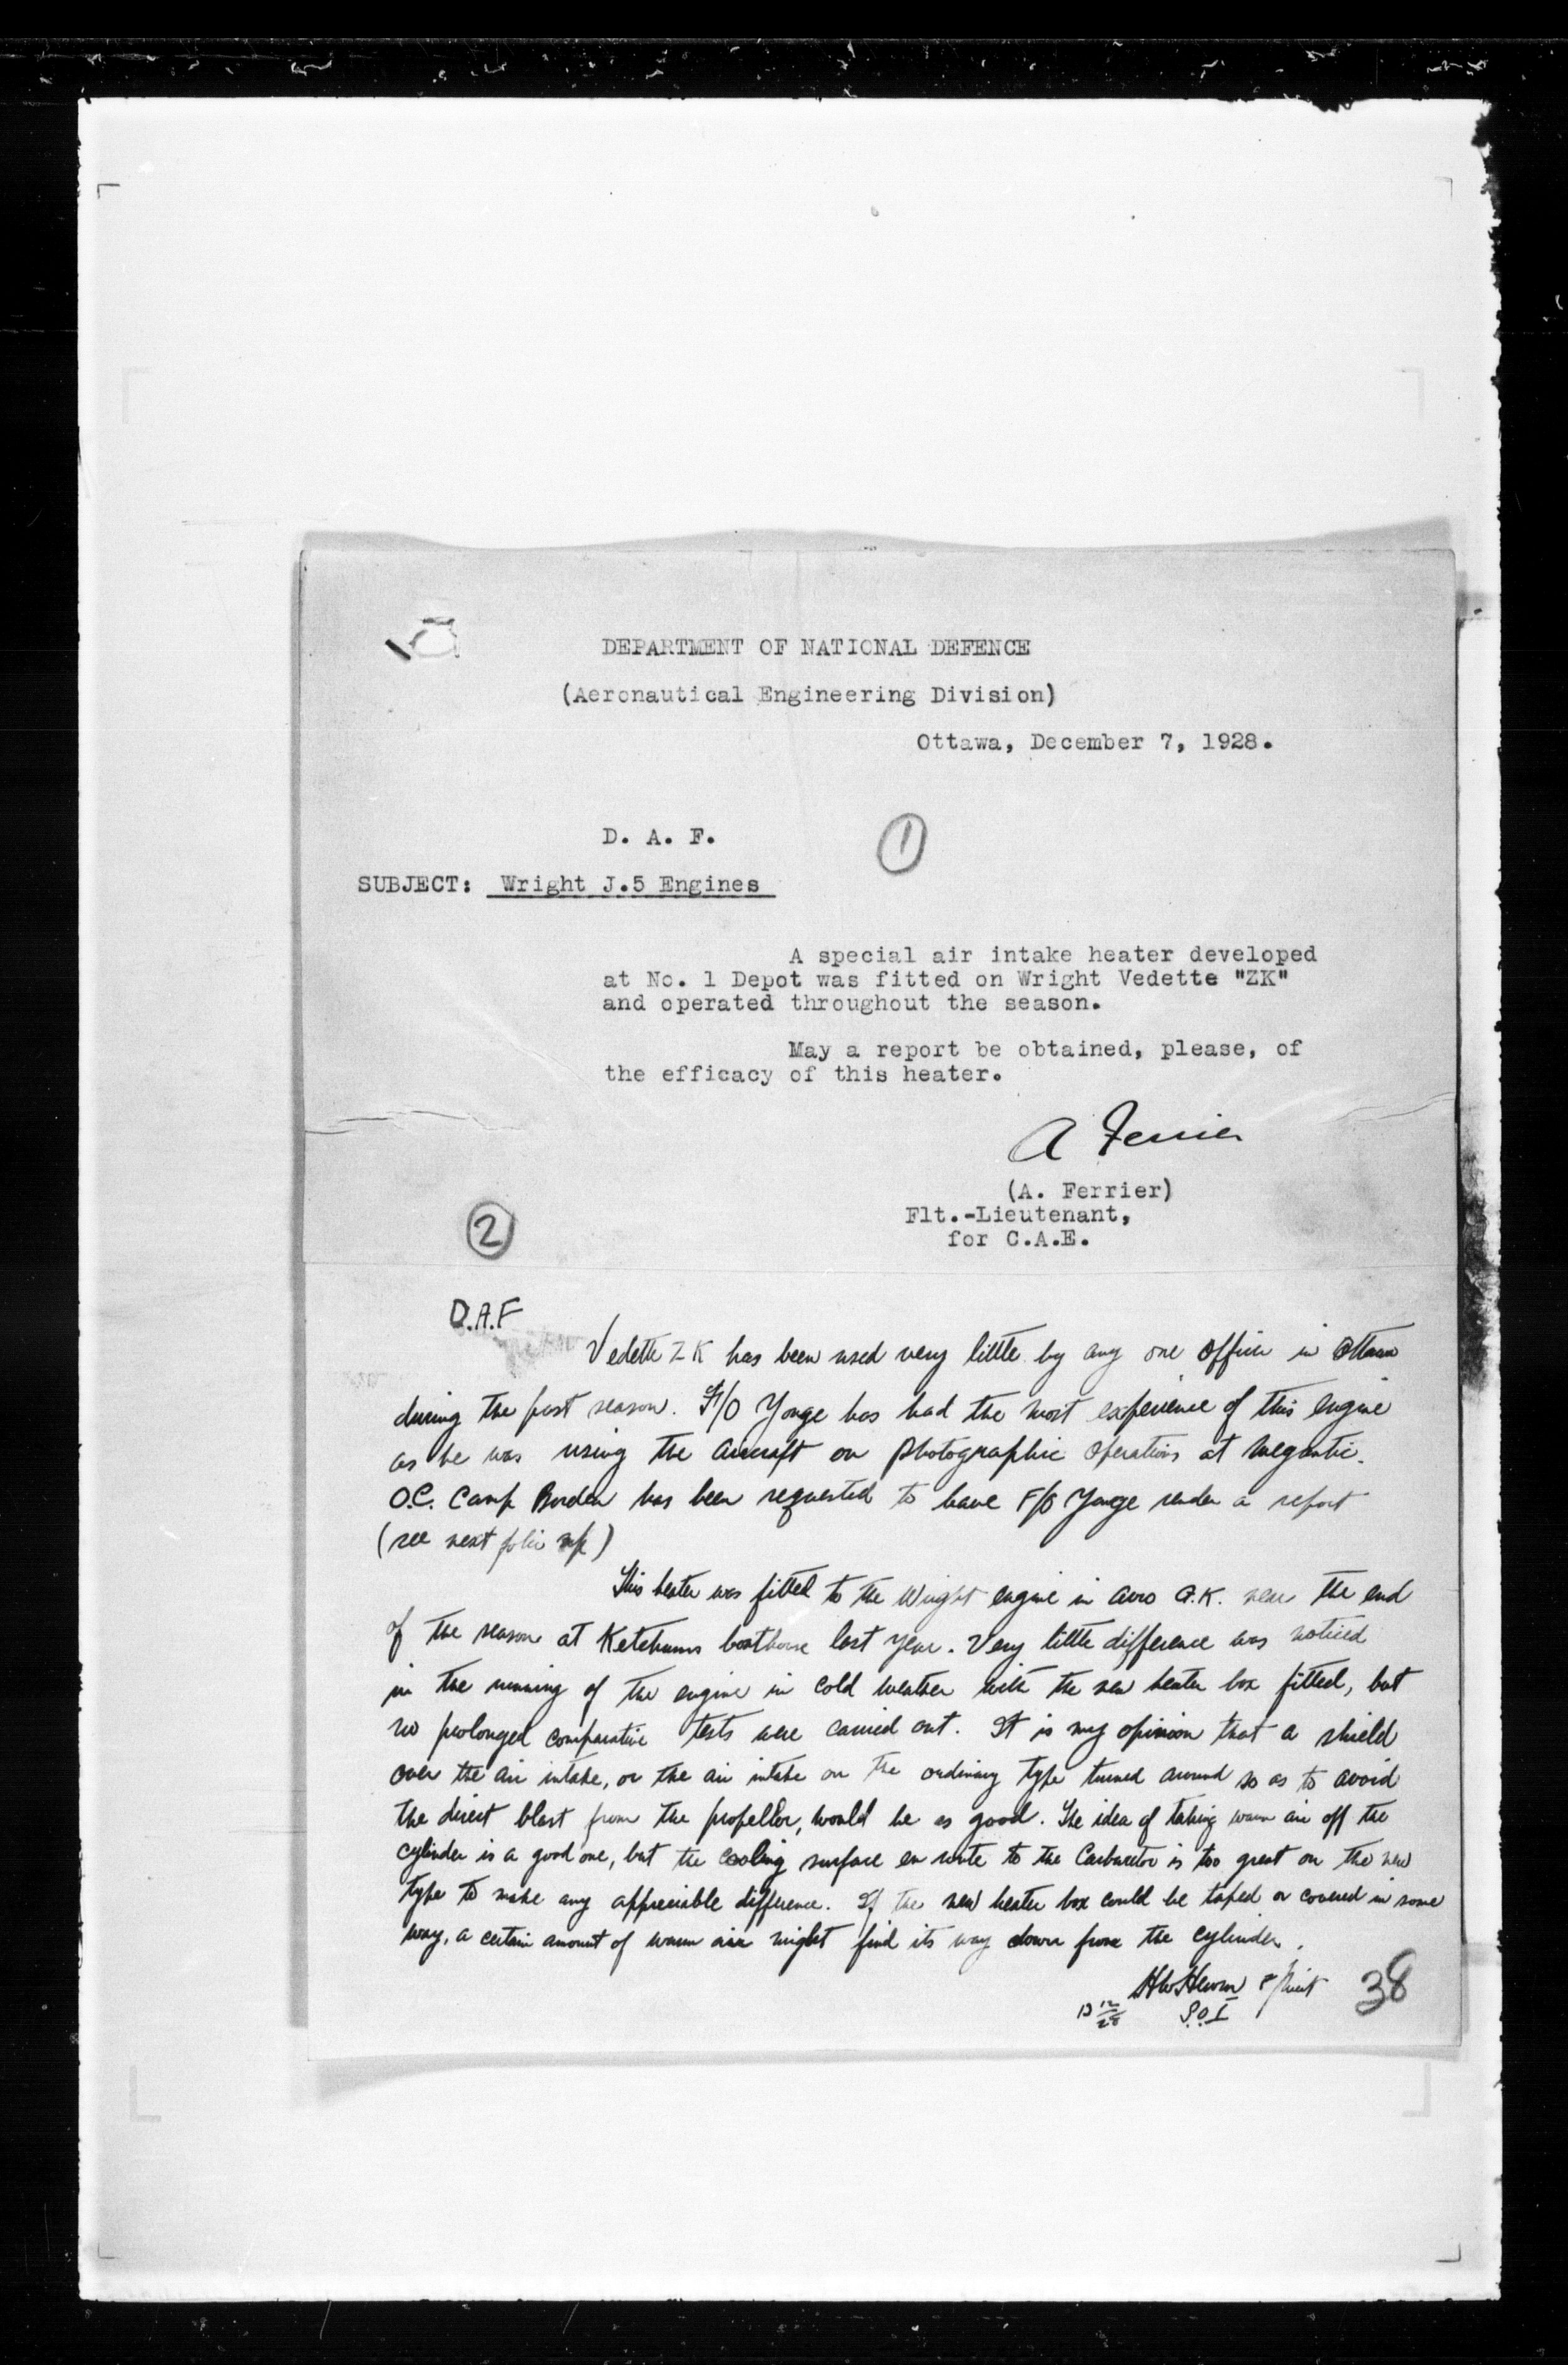 DEPARTMENT OF NATIONAL DEFENCE
(Aeronautical Engineering Division)
Ottawa, December 7, 1928.
D. A. F.
1
SUBJECT: Wright J.5 Engines
A special air intake heater developed
at No. 1 Depot was fitted on Wright Vedette "ZK"
and operated throughout the season.
May a report be obtained, please, of
the efficacy of this heater.
A Ferrier
(A. Ferrier)
Flt.-Lieutenant,
for C.A.E.
2
D.A.F
Vedette ZK has been used very little by any one officer in Ottawa
during the past season. F/O Yonge has had the most experience of this engine
as he was using the aircraft on Photographic Operations at Megantic.
O.C. Camp Borden has been requested to have F/O Yonge render a report
(see next folio
This heater was fitted to the Wright engine in Avro G.K. near the end
of the season at Ketchums boathouse last year. Very little difference was noticed
in the running of the engine in cold weather with the new heater box fitted, but
no prolonged comparative tests were carried out. It is my opinion that a shield
over the air intake, or the air intake on the ordinary type turned around so as to avoid
the direct blast from the propellor, would be as good. The idea of taking warm air off the
cylinder is a good one, but the cooling surface en route to the Carburetor is too great on the new
type to make any appreciable difference. If the new heater box could be taped or covered in some
way, a certain amount of warm air might find its way down from the cylinder.
38